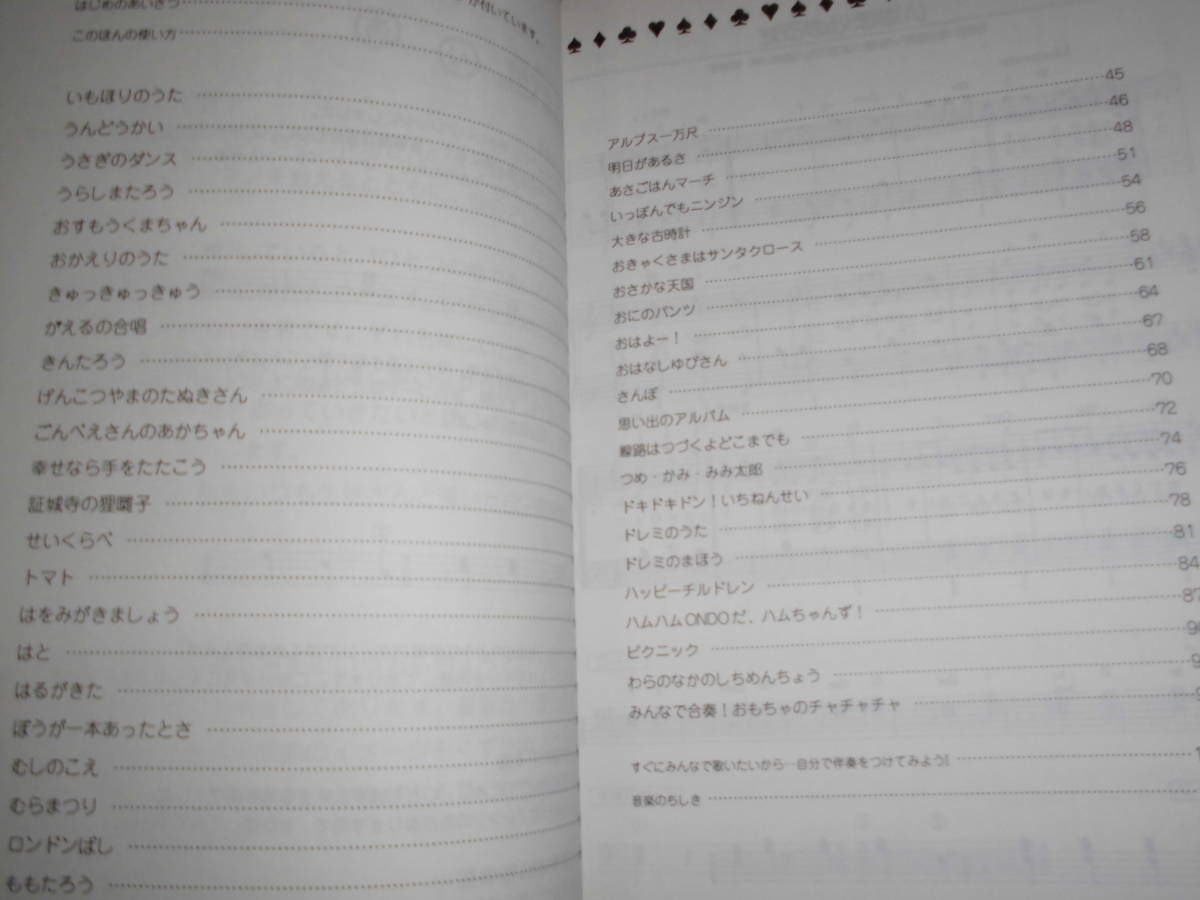 が付いています。
はじめのあいさつ
このほんの使い方
いもほりのうた
うんどうかい
うさぎのダンス
うらしまたろう
おすもうくまちゃん
おかえりのうた
きゅっきゅっきゅう
かえるの合唱
きんたろう
げんこつやまのたぬきさん
ごんべえさんのあかちゃん
幸せなら手をたたこう
証城寺の狸囃子
せいくらべ
トマト
はをみがきましょう
はと
はるがきた
ぼうが一本あったとさ
むしのこえ
むらまつり
ロンドンばし
ももたろう
アルプス一万尺 45
明日があるさ 46
あさごはんマーチ 48
いっぽんでもニンジン 51
大きな古時計 54
おきゃくさまはサンタクロース 56
おさかな天国 58
おにのパンツ 61
おはよー！ 64
おはなしゆびさん 67
さんぽ 68
思い出のアルバム 70
線路はつづくよどこまでも 72
つめ・かみ・みみ太郎 74
ドキドキドン！いちねんせい 76
ドレミのうた 78
ドレミのまほう 81
ハッピーチルドレン 84
ハムハムONDOだ、ハムちゃんず！ 87
ピクニック
わらのなかのしちめんちょう
みんなで合奏！おもちゃのチャチャチャ
すぐにみんなで歌いたいから…自分で伴奏をつけてみよう！
音楽のちしき